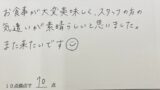 お食事が大変美味しく、スタッフの方の
気遣いが素晴らしいと思いました。
また来たいです
10点満点で 10 点